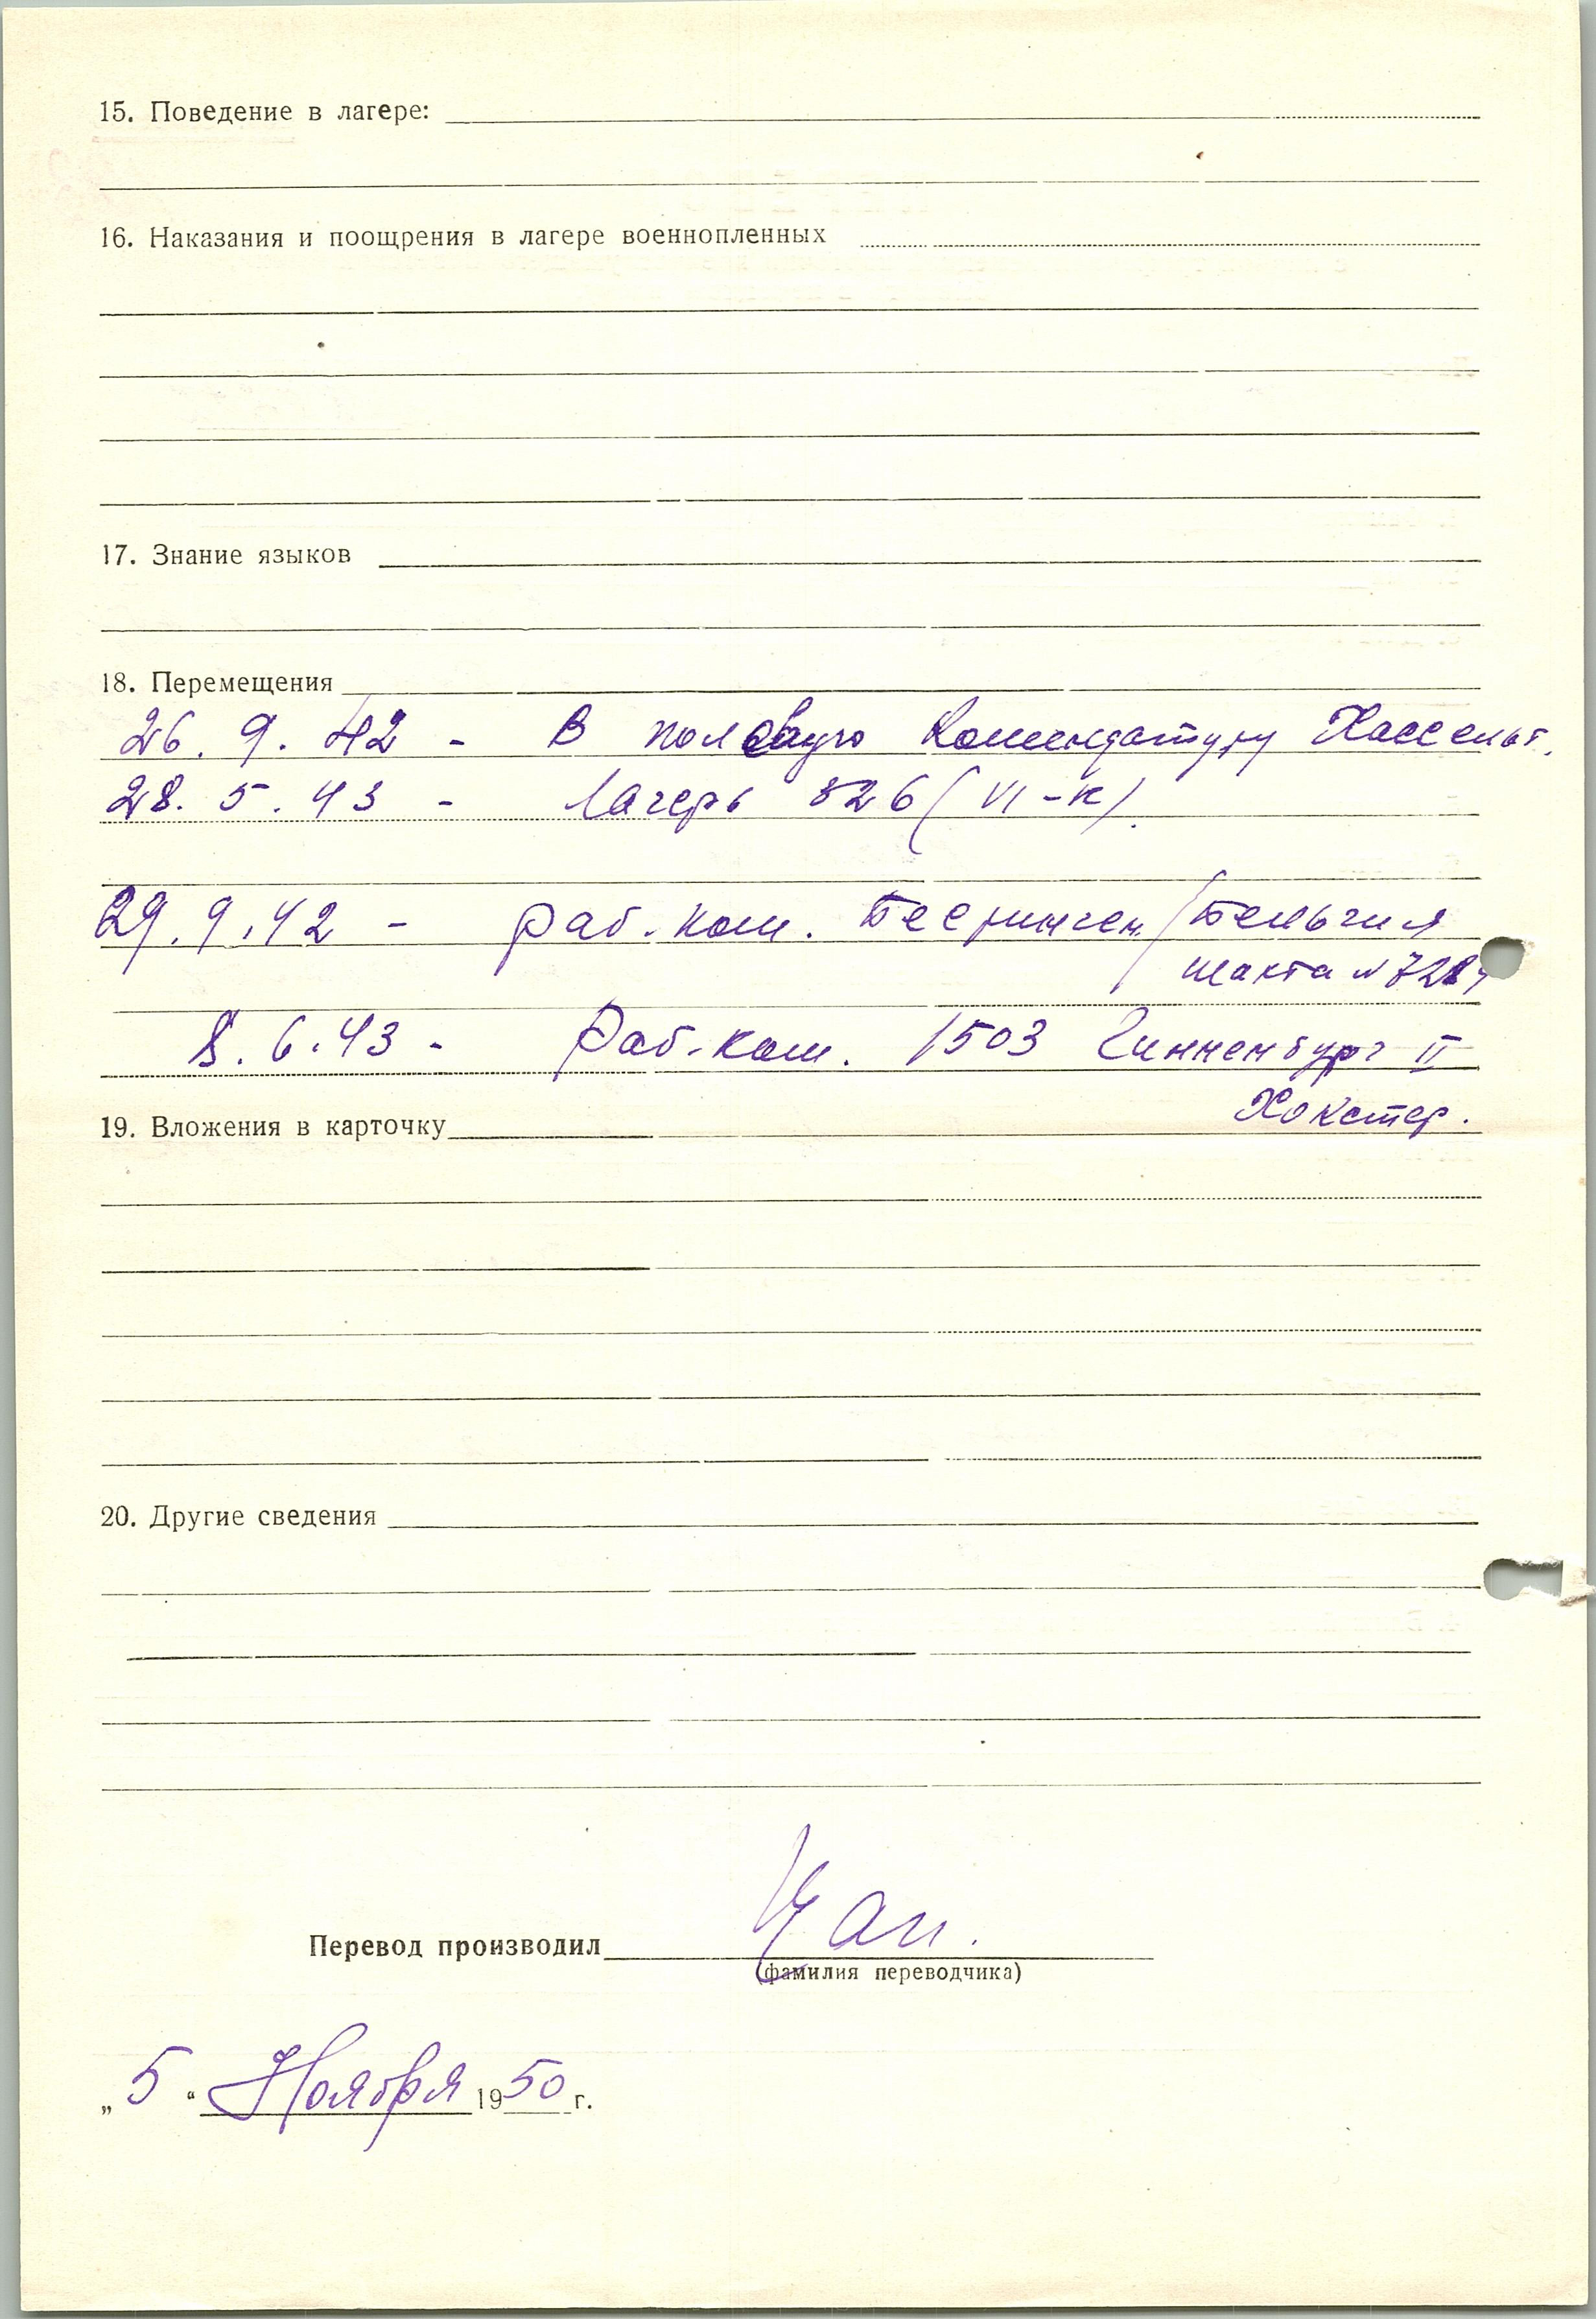 15. Поведение в лагере:
16. Наказания и поощрения в лагере военнопленных
17. Знание языков
18. Перемещения
26. 9. 42 - В полевую комендатуру Хассельт.
28. 5. 43 - Лагерь 326 (VI-К).
29. 9. 42 - Раб. ком. Беерингем / Бельгия
шахта №
8. 6. 43 - Раб. ком. 1503 Гинненбург II
Хокстер.
19. Вложения в карточку
20. Другие сведения
Перевод производил
(фамилия переводчика)
„5“ Ноября 1950 г.